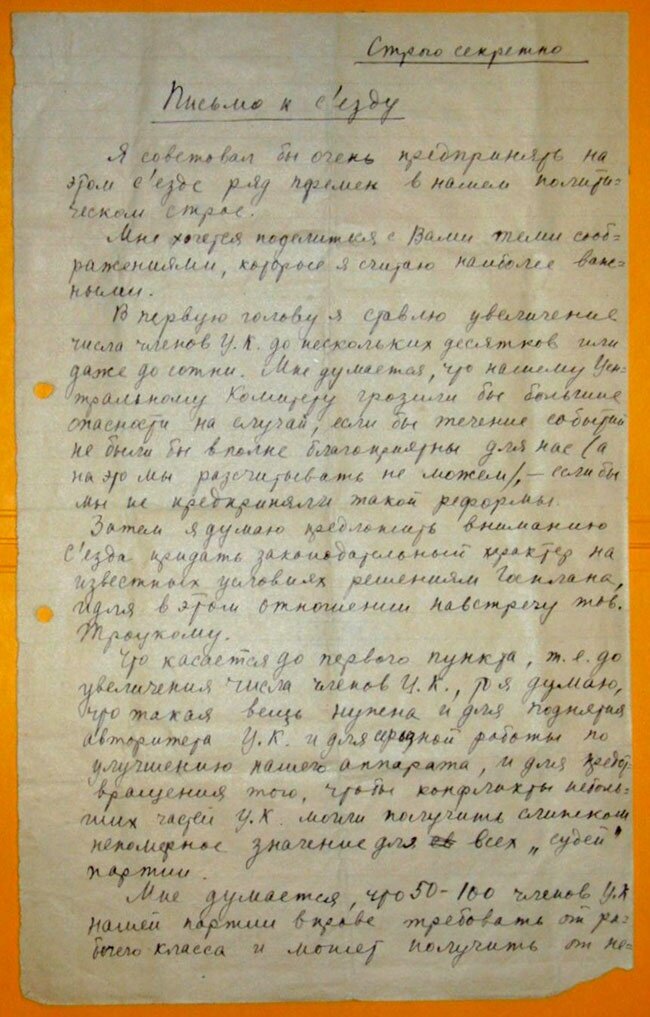 Строго секретно
Письмо к с'езду
Я советовал бы очень предпринять на
этом с'езде ряд перемен в нашем полити=
ческом строе.
Мне хочется поделиться с Вами теми сооб=
ражениями, которые я считаю наиболее важ=
ными.
В первую голову я ставлю увеличение
числа членов Ц.К. до нескольких десятков или
даже до сотни. Мне думается, что нашему Цен=
тральному Комитету грозили бы большие
опасности на случай, если бы течение событий
не были бы вполне благоприятны для нас (а
на это мы рассчитывать не можем), – если бы
мы не предприняли такой реформы.
Затем я думаю предложить вниманию
С'езда придать законодательный характер на
известных условиях решениям Госплана,
идя в этом отношении навстречу тов.
Троцкому.
Что касается до первого пункта, т.е. до
увеличения числа членов Ц.К., то я думаю,
что такая вещь нужна и для поднятия
авторитета Ц.К. и для работы по
улучшению нашего аппарата, и для предот=
вращения того, чтобы конфликты неболь=
ших частей Ц.К. могли получить слишком
непомерное значение для всех „судеб"
партии.
Мне думается, что 50-100 членов Ц.К
нашей партии вправе требовать от ра=
бочего класса и может получить от не=